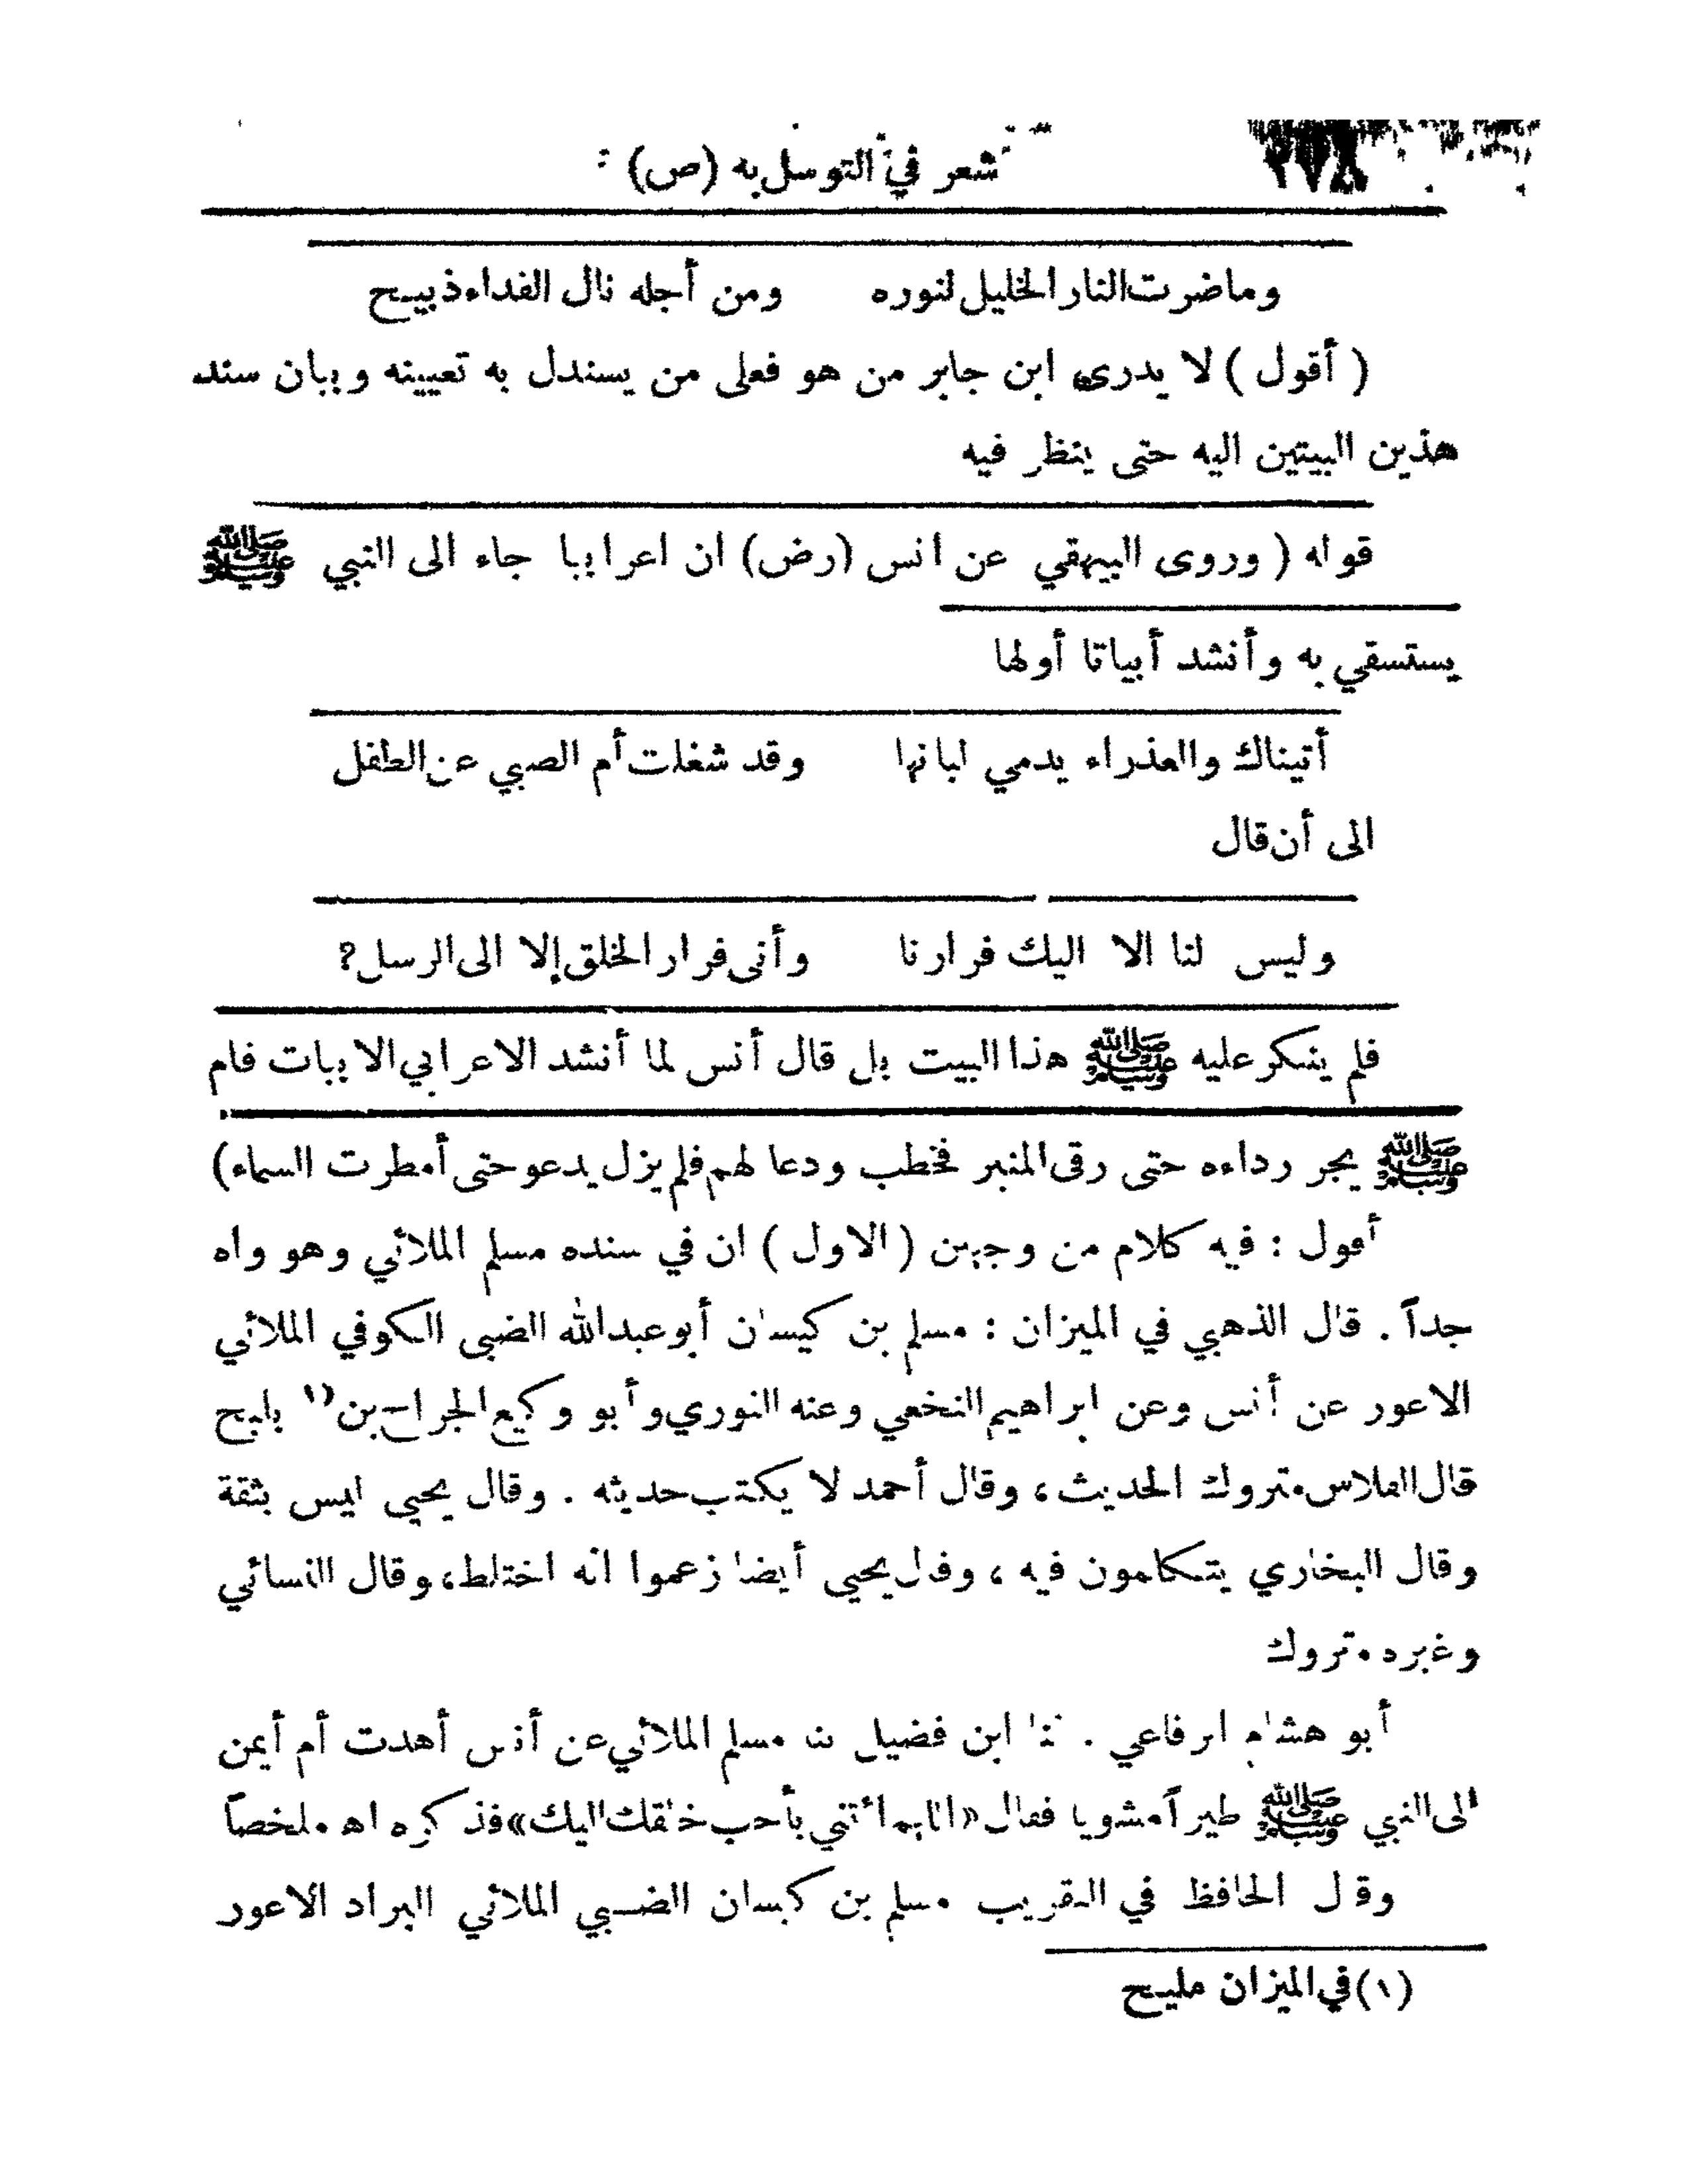 شعر في التوسل به (ص)
وما ضرت النار الخليل لنوره ومن أجله نال الفداء ذبيح
( أقول ) لا يدرى ابن جابر من هو فعلى من يستدل به تعيينه وبيان سند
هذين البيتين اليه حتى ينظر فيه
قوله ( وروى البيهقي عن انس (رض) ان اعرابيا جاء الى النبي ﷺ
يستسقي به وأنشد أبياتا أولها
أتيناك والعذراء يدمي لبانها وقد شغلت أم الصبي عن الطفل
الى أن قال
وليس لنا الا اليك فرارنا وأنى فرار الخلق إلا الى الرسل؟
فلم ينكر عليه ﷺ هذا البيت بل قال أنس لما أنشد الاعرابي الابيات قام
ﷺ يجر رداءه حتى رقى المنبر فخطب ودعا لهم فلم يزل يدعو حتى أمطرت السماء)
أقول : فيه كلام من وجهين ( الاول ) ان في سنده مسلم الملائي وهو واه
جداً . قال الذهبي في الميزان : مسلم بن كيسان أبو عبدالله الضبي الكوفي الملائي
الاعور عن أنس وعن ابراهيم النخعي وعنه الثوري وأبو وكيع الجراح بن (١ بليح
قال الفلاس متروك الحديث، وقال أحمد لا يكتب حديثه . وقال يحيى ليس بثقة
وقال البخاري يتكلمون فيه ، وقال يحيى أيضا زعموا انه اختلط، وقال النسائي
وغيره متروك
أبو هشام الرفاعي . ثنا ابن فضيل ثنا مسلم الملائي عن أنس أهدت أم أيمن
الى النبي ﷺ طيراً مشويا فقال «اللهم ائتني بأحب خلقك اليك» فذكره اه ملخصاً
وقال الحافظ في التقريب مسلم بن كيسان الضبي الملائي البراد الاعور
(١) في الميزان مليح